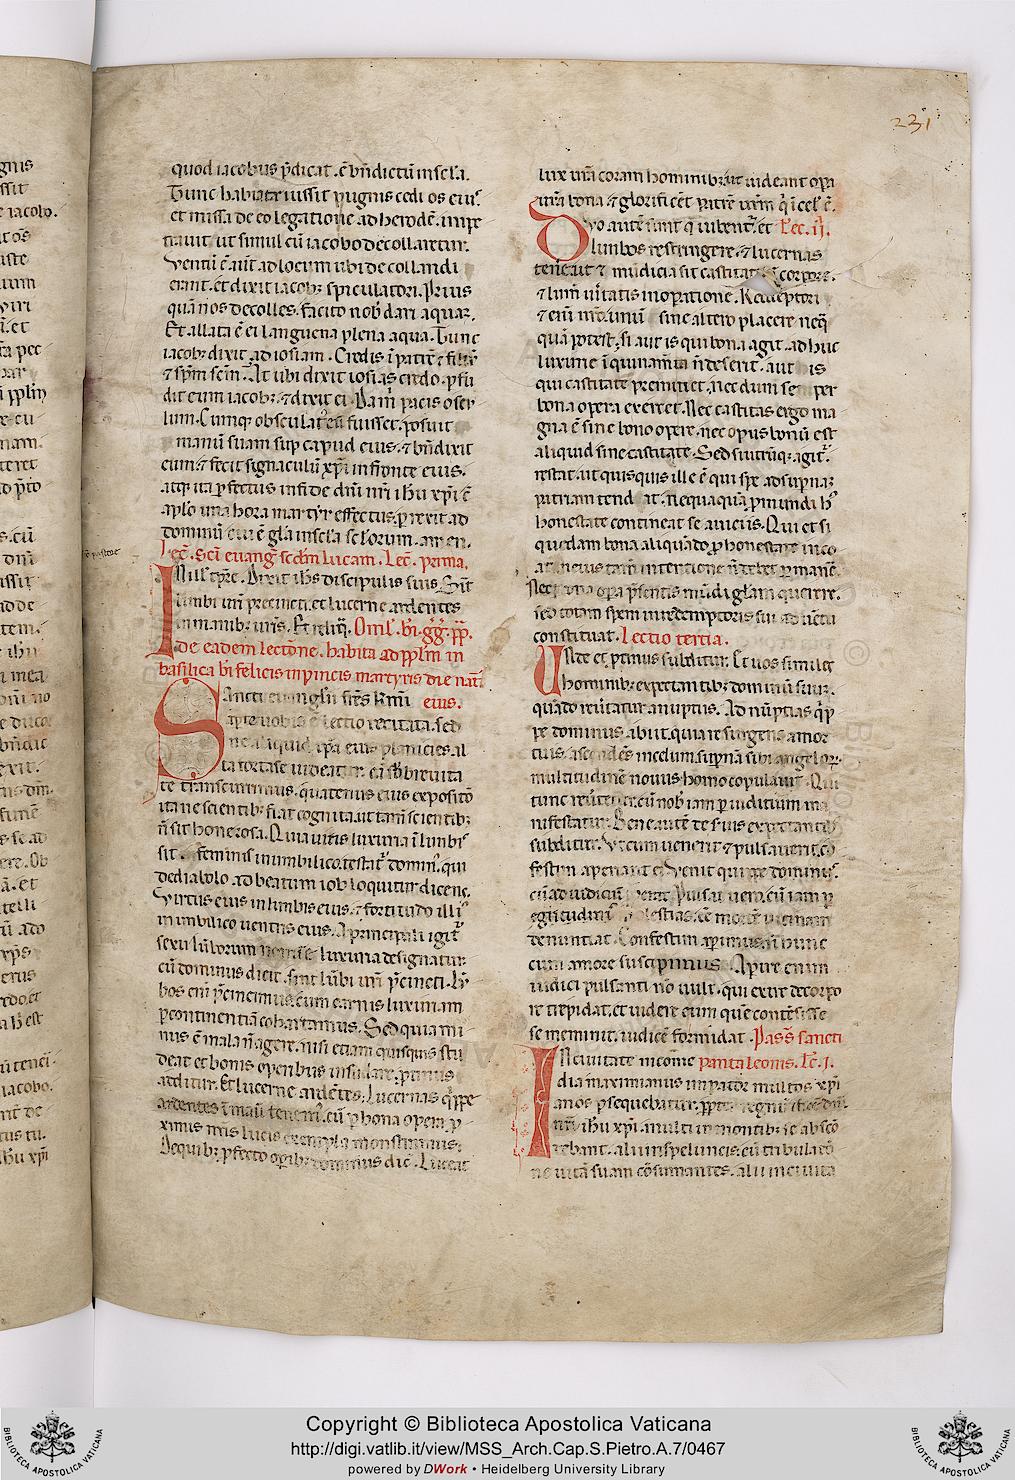 231
quod iacobus p̄dicat. ē bn̄dictū in sc̄la.
Tunc habiatar iussit pugnis cedi os eiuˢ.
et missa de eo legatione ad herodē. impe
trauit ut simul cū iacobo decollaretur.
Ventū ē aūt ad locum ubi decollandi
erant. et dixit iacobꝫ spiculatori. Prius
quā nos decolles. facito nob̄ dari aquaꝫ.
Et allata ē ei languena plena aqua. Tunc
iacobꝫ dixit ad iosiam. Credis ī patrē ⁊ filiū
⁊ sp̄m sc̄m. At ubi dixit iosias credo. p̄fu
dit eum iacobꝫ. ⁊ dixit ei. Da m̄ pacis oscu
lum. Cumqꝫ obsculatꝰ eū fuisset. posuit
manū suam sup capud eius. ⁊ bn̄dixit
eum. ⁊ fecit signaculū xp̄i in fronte eius.
atqꝫ ita ꝑfectus in fide dn̄i nr̄i ih̄u xp̄i cū
ap̄lo una hora martyr effectus. ꝑrexit ad
dominū cui ē gl̄a in sc̄la sc̄lorum. amen.
Lec̄. sc̄i euanḡ. sc̄dm Lucam. Lec̄. prima.
IN ill' tp̄re. Dixit ih̄s discipulis suis. Sint
lumbi ur̄i precincti. et lucerne ardentes
in manibꝫ ur̄is. Et reliq̄. Omel'. bi. gḡ. pp̄.
de eadem lectione. habita ad pp̄lm in
basilica bi felicis in pincis martyris die nat̄
SAncti euanglii frēs k̄mi eius.
aperte uobis ē lectio recitata. sed
ne aliquid ip̄a eius planicies. al
ta fortasse uideatur. eā sb̄ breuita
te transcurrimus. quatenus eius expositio
ita nescientibꝫ fiat cognita. ut tam̄ scientibꝫ
n̄ sit honerosa. Quia uiris luxuria ī lumbis
sit. feminis in umbilico. testatᷣ dominꝰ. qui
de diabolo ad beatum iob loquitur dicens.
Virtus eius in lumbis eius. ⁊ fortitudo illiꝰ
in umbilico uentris eius. A principali igitᷣ
sexu lūborum nomine luxuria designatur.
cū dominus dicit. sint lūbi ur̄i p̄cincti. Lū
bos eni p̄cincimus. cum carnis luxuriam
ꝑ continentiā cohartamus. Sed quia mi
nus ē mala n̄ agere. nisi etiam quisquis stu
deat et bonis operibus insudare. protinus
additur. Et lucerne ardētes. Lucernas q̄ppe
ardentes ī manibꝫ tenemꝰ. cū ꝑ bona opera ꝓ
ximis nr̄is lucis exempla monstramus.
De quibꝫ ꝑfecto oꝑibꝫ dominus dic̄. Luceat
lux ur̄a coram hominibꝫ. ut uideant opa
ur̄a bona. ⁊ glorificēt patrē ur̄m q̄ ī cel' ē.
DVo autē sunt q̄ iubentᷣ. et Lec. ij.
lumbos restringere. ⁊ lucernas
tenere. ut ⁊ mudicia sit castitatis ī corpore.
⁊ lum̄ ueritatis in opatione. Redēptori
⁊ enī nr̄o unum sine altero placere neq̄
quā potest. si aut is qui bona agit. adhuc
luxurie īquinamta n̄ deserit. aut is
qui castitate preminet. necdum se per
bona opera exercet. Nec castitas ergo ma
gna ē sine bono opere. nec opus bonū est
aliquid sine castitate. Sed si utrūqꝫ agitᷣ.
restat. ut quisquis ille ē qui spe ad supnaꝫ
patriam tendat. nequaquā ꝓ mundi hꝰ
honestate contineat se a uiciis. Qui et si
quedam bona aliquādo ꝓ honestate inco
at. in eius tam̄ intentione n̄ debet ꝑmanē.
Nec per bona opa p̄sentis mūdi gl̄am querere.
sed totam spem in redemptoris sui aduētū
constituat. Lectio tertia.
UNde et ꝓtinus subditur. Et uos similes
hominibꝫ expectantibꝫ dominū suuꝫ.
quādo reūtatur a nuptiis. Ad nūptias q̄p
pe dominus abiit. quia resurgens a mor
tuis. ascendēs in celum. supnā sibi angeloꝝ
multitudinē nouus homo copulauit. Qui
tunc reūtetur. cū nob̄ iam ꝑ iuditium ma
nifestatur. Bene autē de seruis expectantibꝫ
subditur. Vt cum uenerit ⁊ pulsauerit. cō
festim aperiant ei. Venit quippe dominus.
cū ad iudiciū ꝓperat. Pulsat uero. cū iam ꝑ
egritudinis molestias. eē mortē uicinam
denuntiat. Confestim aꝑimus. si hunc
cum amore suscipimus. Apire enim
iudici pulsanti nō uult. qui exire de corpo
re trepidat. et uidere eum quē contēsisse
se meminit. iudicē formidat. Pass̄ sancti
IN ciuitate nicome pantaleonis. Lc̄. I.
dia maximianus impator multos xp̄i
anos ꝑsequebatur. ꝓpter regnū
nr̄i ih̄u xp̄i. multi in montibꝫ se abscō
debant. alii in speluncis. cū tribulatō
ne uitā suam cōsumantes. alii in ciuita
Copyright © Biblioteca Apostolica Vaticana
http://digi.vatlib.it/view/MSS_Arch.Cap.S.Pietro.A.7/0467
powered by DWork • Heidelberg University Library
BIBLIOTECA APOSTOLICA VATICANA
BIBLIOTECA APOSTOLICA VATICANA